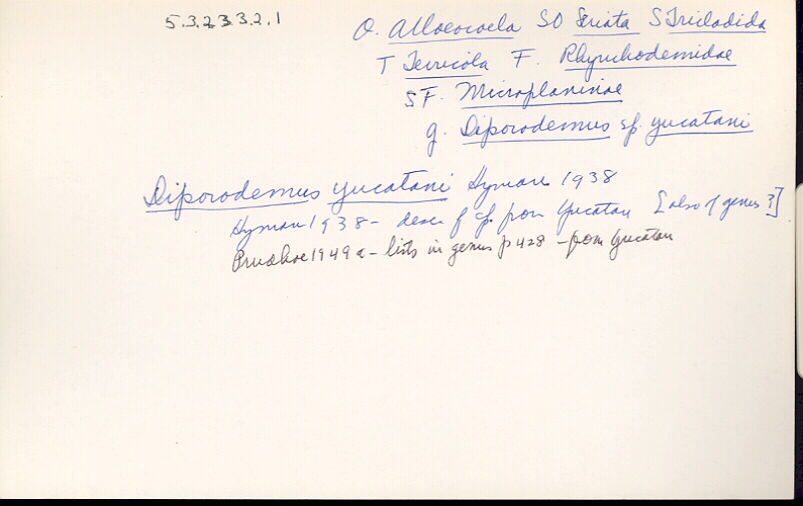 5.3.2.3.3.2.1
O. Alloeocoela SO Seriata S Tricladida
T Terricola F. Rhynchodemidae
SF. Microplaninae
g. Diporodemus sp. yucatani
Diporodemus yucatani Hyman 1938
Hyman 1938 - desc of sp. from Yucatan [also of genus?]
Prudhoe 1949a - lists in genus p 428 - from Yucatan